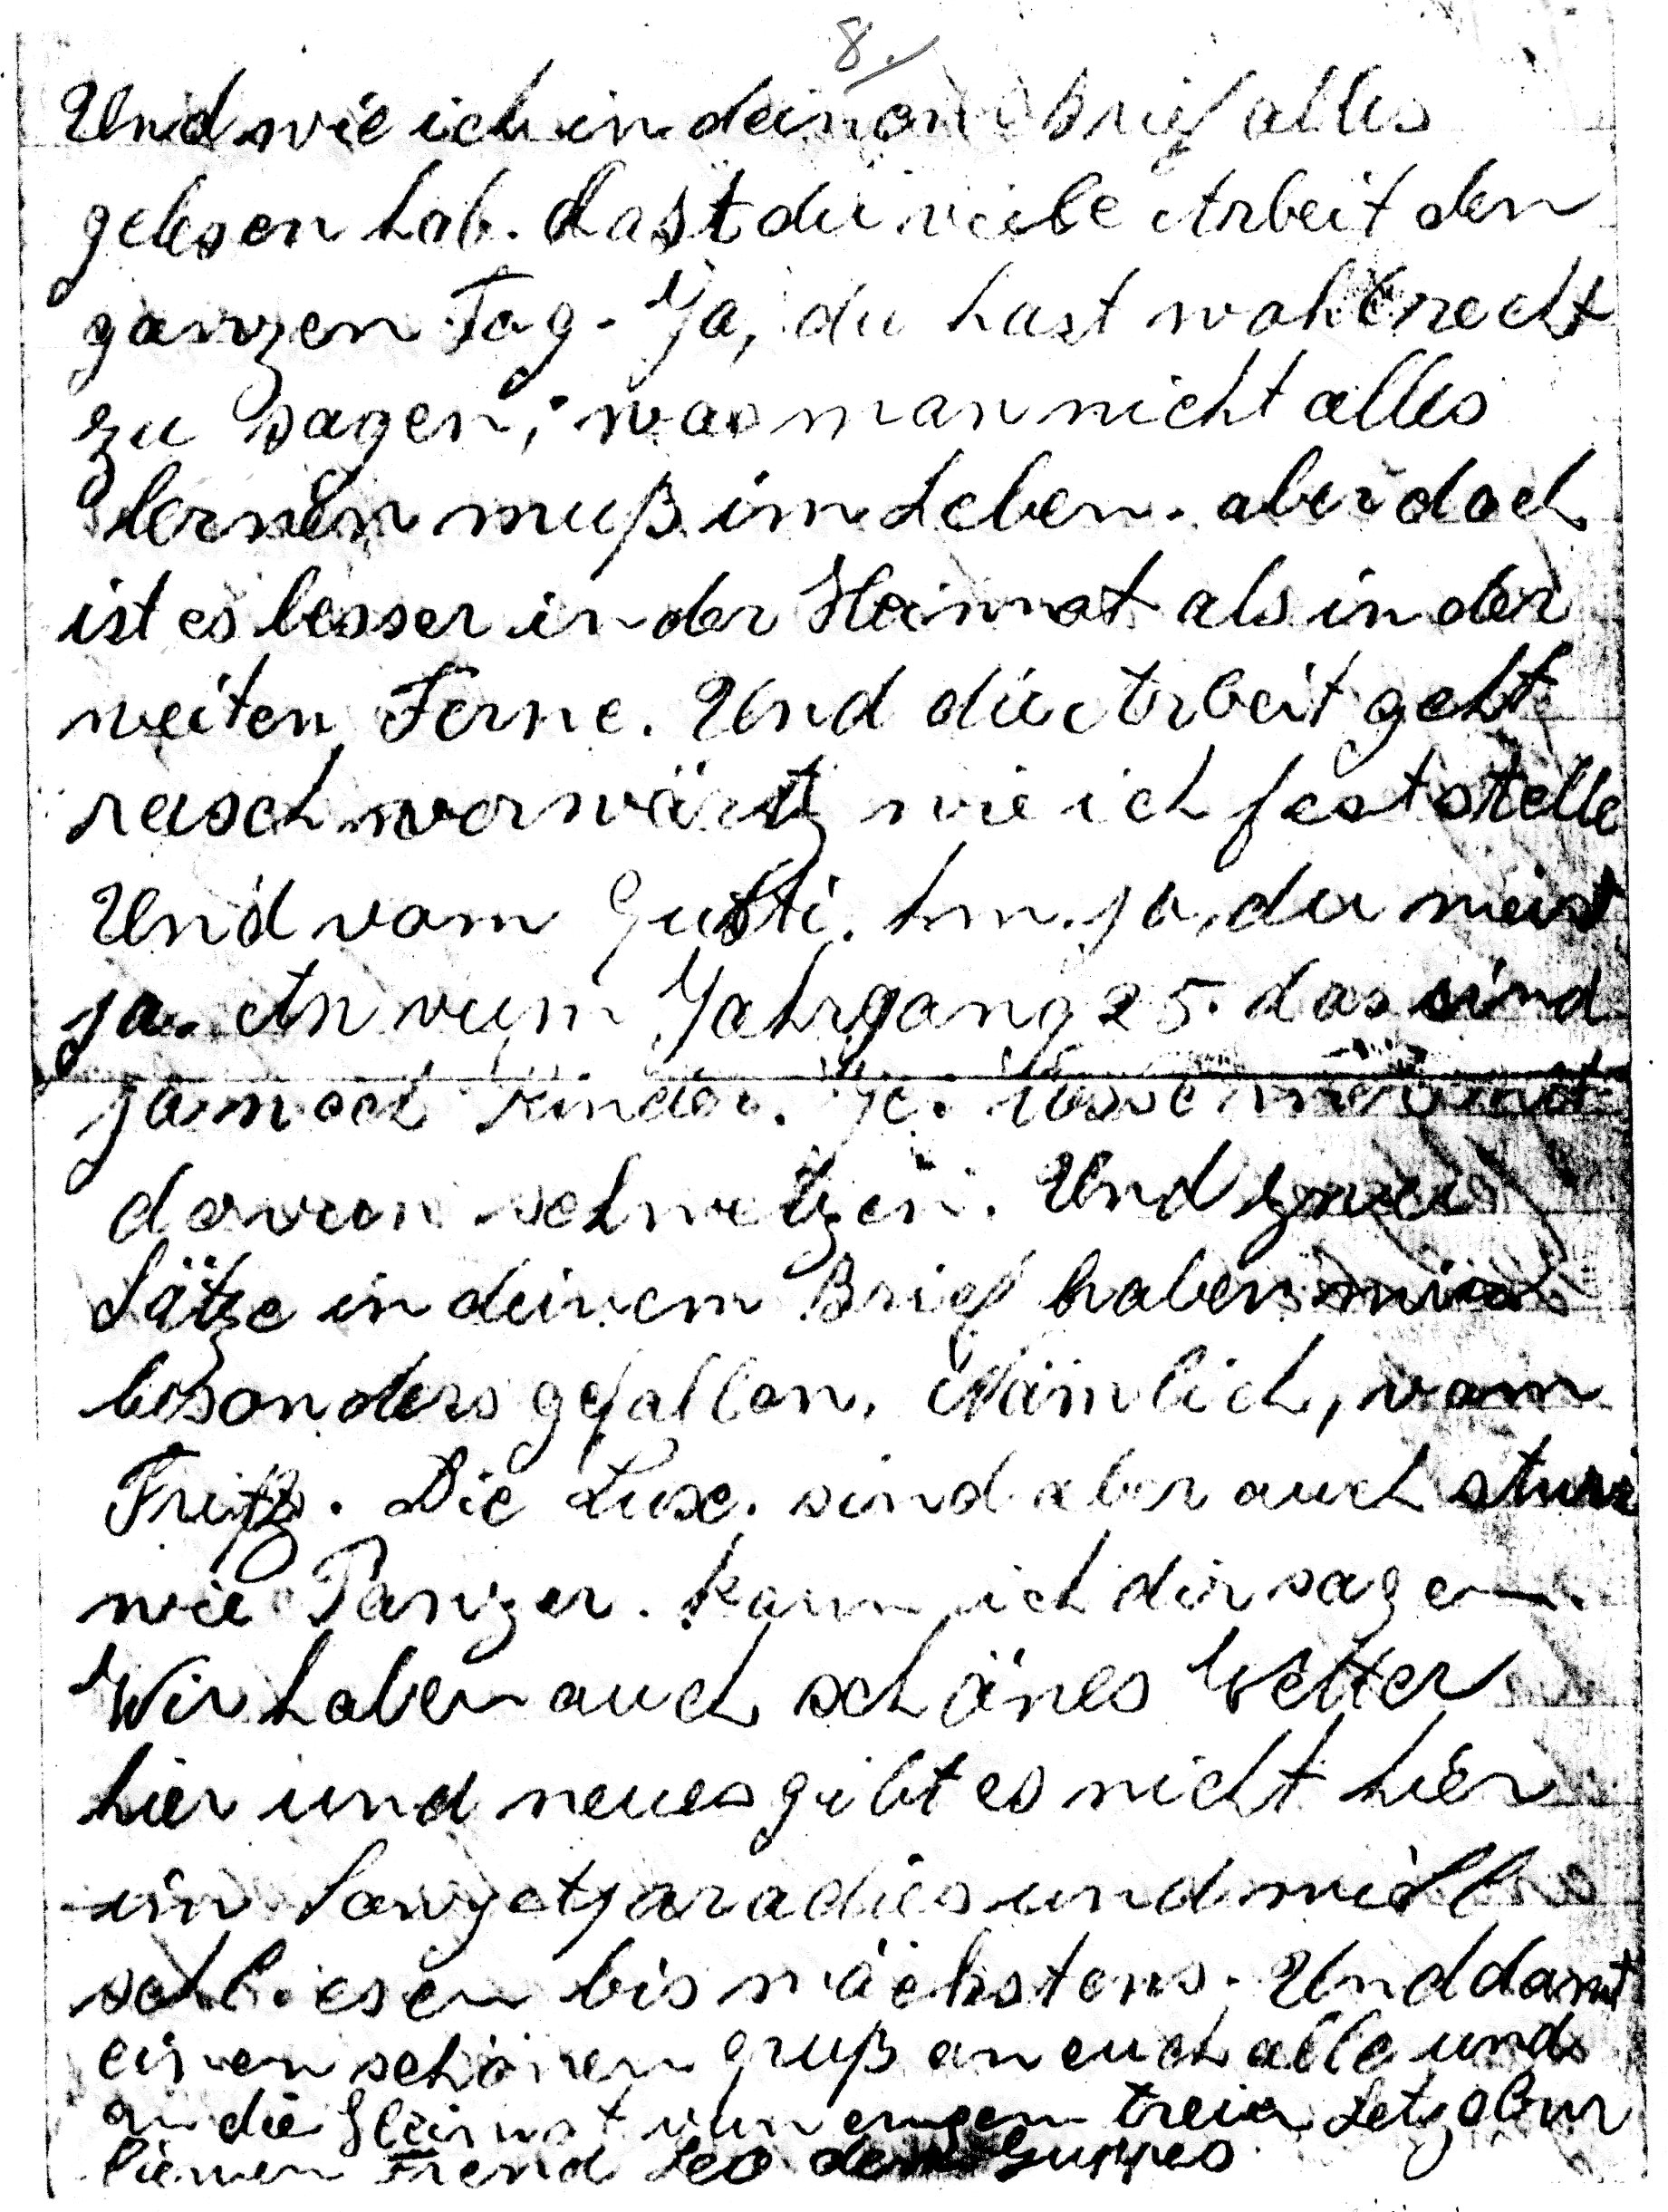 8.
Und wie ich in deinem Brief alles
gelesen hab. hast du viele Arbeit den
ganzen Tag. Ja, du hast wohl recht
zu sagen, was man nicht alles
lernen muß im Leben. aber doch
ist es besser in der Heimat als in der
weiten Ferne. Und die Arbeit geht
rasch vorwärtz wie ich feststelle
Und vom Gusti. hm. ja, du weist
ja. An vum Jahrgang 25. das sind
ja noch Kinder. Je.
davun schwetzen. Und zwei
Sätze in deinem Brief haben mir
besonders gefallen. Nämlich, vom
Fritz. Die Lux. sind aber auch stur
wie Panzer. kann ich dir sagen.
Wir haben auch schönes Wetter
hier und neues gibt es nicht hier
im Sowjetparadies und will
schliesen bis nächstens. Und damit
einen schönen gruß an euch alle und
an die Heimat vun engem treien Letzebur
Frend Leo Guppes